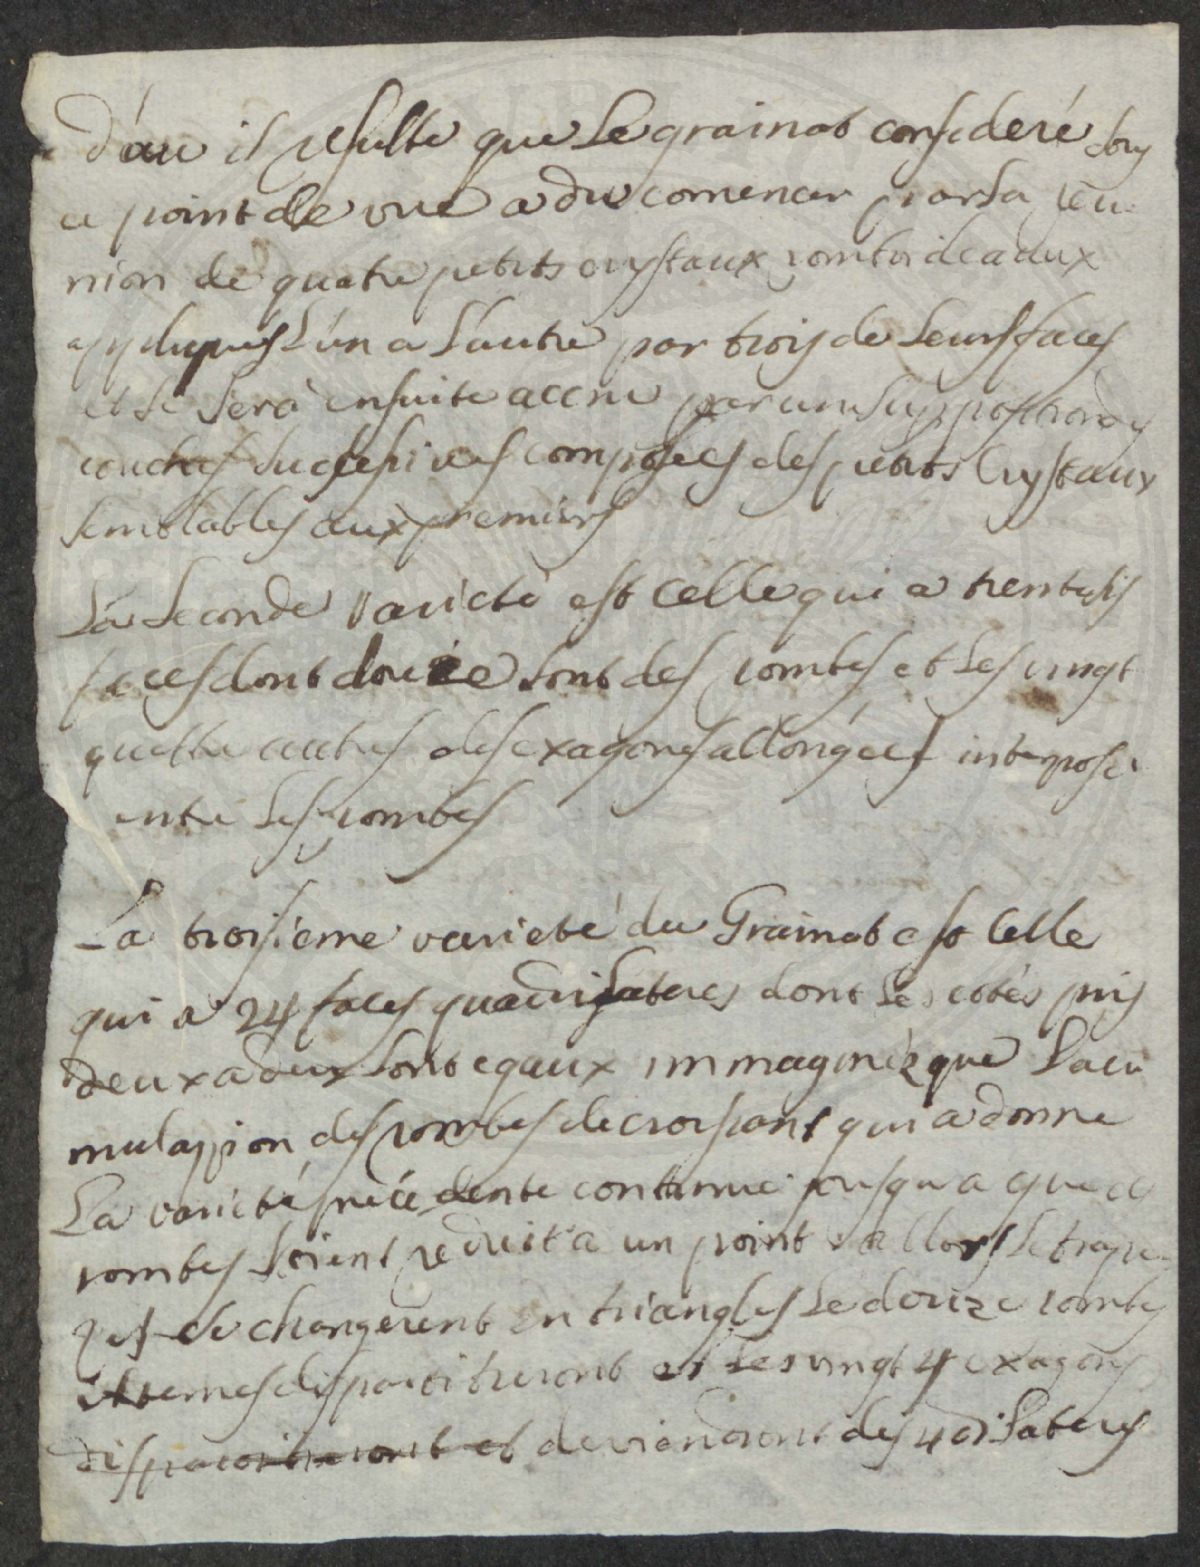 d'au il resulte que le grainat consideré sous
ce point de vue a du comencer par la reu
nion de quatre petits crystaux romboideaux
appliques l'un a l'autre par trois de leurs faces
et se sera ensuite accru par un superposition des
couches successives composées des petits Crystaux
semblables aux premiers
La seconde varieté est celle qui a trentesis
faces dont douze sont des rombes et les vingt
quattre autres des exagones allongées interposé
entre les rombes
La troisieme varieté du Grainat est Celle
qui a 24 faces quadrilateres dont les cotés pris
deux a deux sont egaux immaginéz que l'acu
mulassion des rombes decroissant qui a donne
La varieté precedente continue jousqu a que ce
rombes soient reduit a un point allors le trape
zes se changerent en triangles le douze rombes
externes disparoitreront et les vingt 4 exagons
disparoitreront et deviendront des 4drilateres